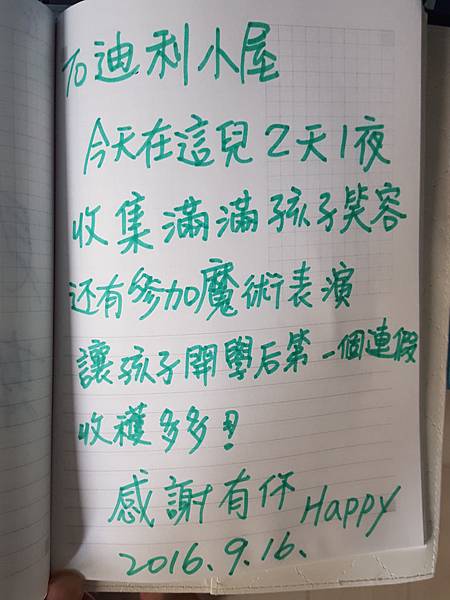 To 迪利小屋
今天在這兒2天1夜
收集滿滿孩子笑容
还有參加魔術表演
讓孩子開學后第一個連假
收穫多多!!
感謝有你 Happy
2016.9.16.